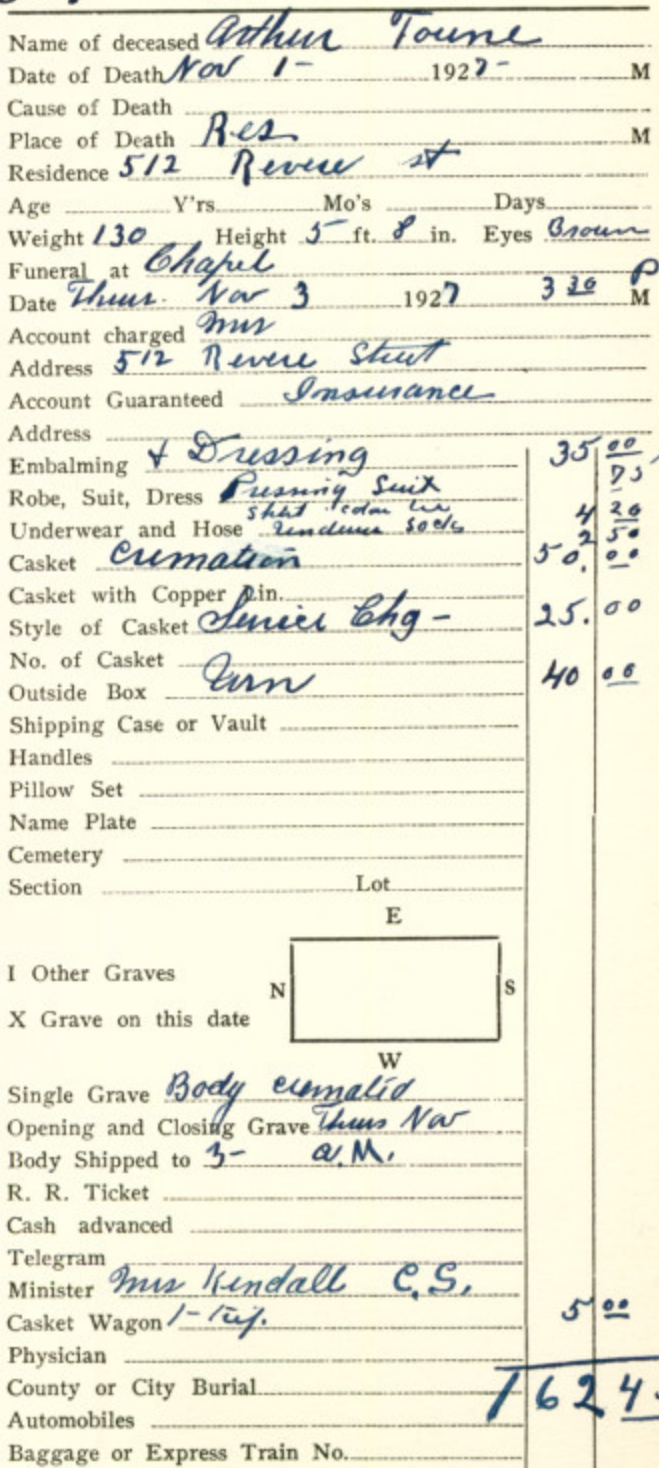 Name of deceased Arthur Towne
Date of Death Nov 1- 1927- M
Cause of Death
Place of Death Res M
Residence 512 Revere st
Age Y'rs Mo's Days
Weight 130 Height 5 ft. 8 in. Eyes Brown
Funeral at Chapel
Date Thur. Nov 3 1927 3 30 P M
Account charged Mrs
Address 512 Revere Street
Account Guaranteed Insurance
Address
Embalming & Dressing 35 00
Robe, Suit, Dress Pressing Suit 75
shirt colar tie 4 20
Underwear and Hose Underwear Socks 2 50
Casket Cremation 50. 00
Casket with Copper Lin.
Style of Casket Service Chg - 25. 00
No. of Casket
Outside Box Urn 40 00
Shipping Case or Vault
Handles
Pillow Set
Name Plate
Cemetery
Section Lot
E
I Other Graves
N S
X Grave on this date
W
Single Grave Body cremated
Opening and Closing Grave Thurs Nov
Body Shipped to 3- a.M.
R. R. Ticket
Cash advanced
Telegram
Minister Mrs Kendall C.S.
Casket Wagon 1- 5 00
Physician
County or City Burial 1624
Automobiles
Baggage or Express Train No.